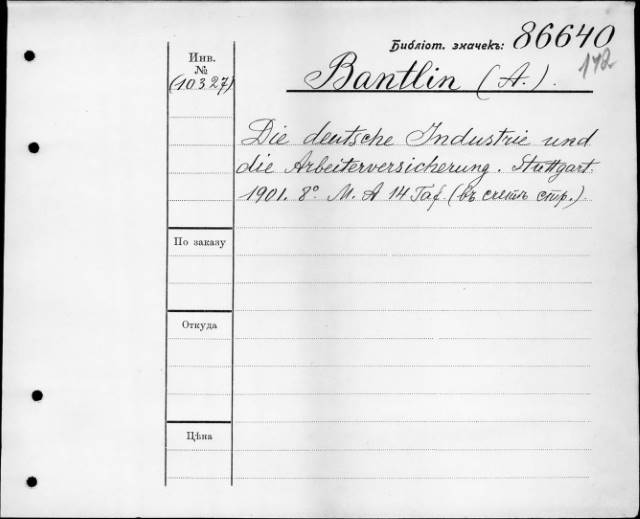 Библіот. значекъ: 86640
172
Инв.
№
(10327)
Bantlin (A.).
Die deutsche Industrie und
die Arbeiterversicherung. Stuttgart.
1901. 8º. M. A 14 Taf. (въ счетѣ стр.)
По заказу
Откуда
Цѣна